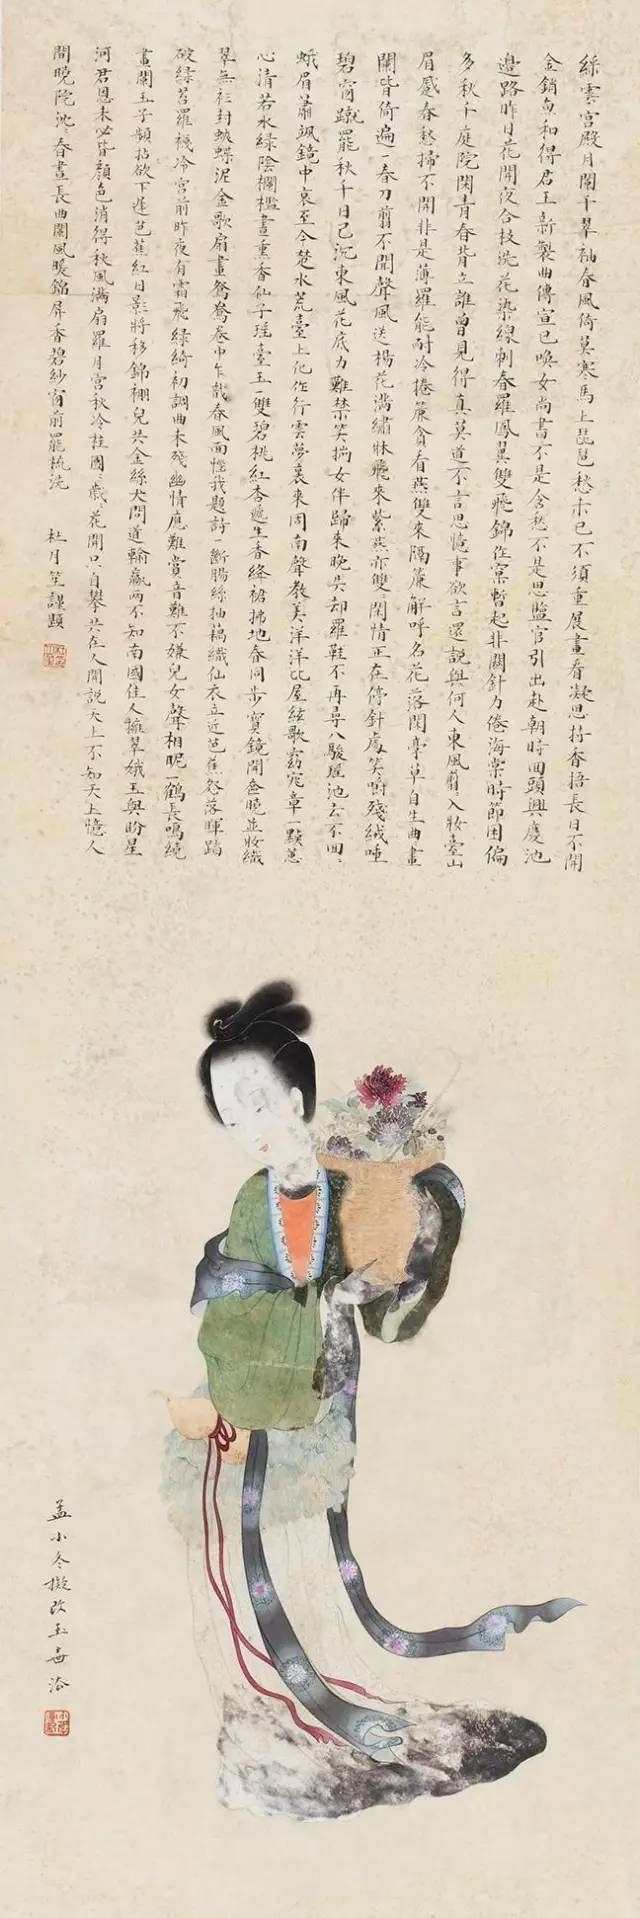 絳雲宮殿月闌干翠袖春風倚莫寒馬上琵琶愁未已不須重展畫看凝思持香捂長日不開
金鎖魚和得君王新製曲傳宣已喚女尚書不是含愁不是思監官引出赴朝時回頭興慶池
邊路昨日花開夜合枝洗花染線刺春羅鳳翼雙飛錦作窠暫起非關針力倦海棠時節困偏
多秋千庭院閑青春背立誰曾見得真莫道不言思憶事欲言還說與何人東風翦入妝臺山
眉蹙春愁掃不開非是薄羅能耐冷捲簾貪看燕雙來隔簾解呼名花落閑亭草自生曲畫
闌皆倚遍一春刀剪不聞聲風送楊花滿繡牀飛來紫燕亦雙閑情正在停針處笑嚼殘絨唾
碧窗蹴罷秋千日已沉東風花底力難禁笑揣女伴歸來晚失却羅鞋不再尋八駿瑤池去不回
蛾眉蕭颯鏡中哀至今楚水荒臺上化作行雲夢裏來周南聲教美洋洋比屋絃歌窈窕章一點蕙
心清若水綠陰欄檻晝熏香仙子瑤臺玉一雙碧桃紅杏遞生香絳裙拂地春同步寶鏡開奩曉並妝織
翠無在封蛺蝶泥金歌扇畫鴛鴦卷中乍識春風面惱我題詩一斷腸絲抽藕織仙衣立近芭蕉怨落暉踏
破綠苔羅襪冷宮前昨夜有霜飛綠綺初調曲未殘幽情應難賞音難不嫌兒女聲相昵一鶴長鳴繞
畫闌玉子頻拈欲下遲芭蕉紅日影將移錦襪兒共金絲犬閒道輸贏兩不知南國佳人擁翠娥玉輿盼星
河君恩未必皆顏色消得秋風滿扇羅月宮秋冷桂團歲花開口自攀共在人間說天上不知天上憶人
間曉院沈春晝長曲闌風暖錦屏香碧紗窗前罷梳洗
杜月笙謹題
孟小冬擬改玉壺法